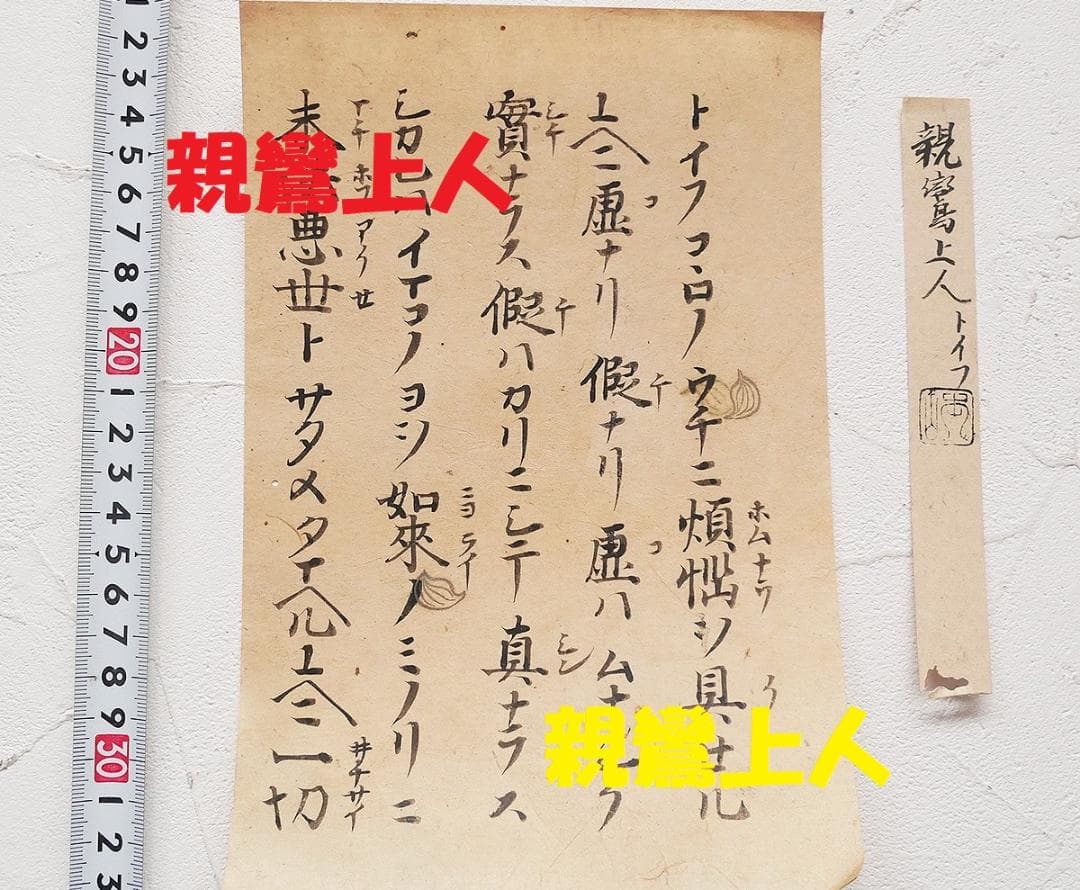 親鸞上人トイフ
トイフコヽロノウチニ煩惱ヲ具セル
ホムナウ
ク
ユヘニ虚ナリ假ナリ虚ハムナ
コ
ケ
コ
實ナラス假ハカリニシテ真ナラス
ケ
シン
シカ ハイマコノヨヲ如來ノミノリニ
ニヨライ
末 悪世トサタメタマヘルユヘニ一切
マチ ホフ アク セ
サイ
親鸞上人
親鸞上人